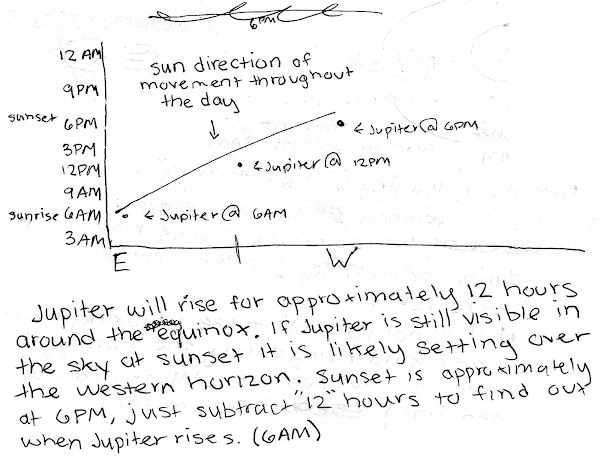 6PM
12 AM
sun direction of
movement throughout
the day
9PM
sunset 6PM
← Jupiter @ 6PM
3PM
12PM
← Jupiter @ 12PM
9AM
sunrise 6AM
← Jupiter @ 6AM
3AM
E
W
Jupiter will rise for approximately 12 hours
around the equinox. If Jupiter is still visible in
the sky at sunset it is likely setting over
the western horizon. Sunset is approximately
at 6PM, just subtract "12" hours to find out
when Jupiter rises. (6AM)